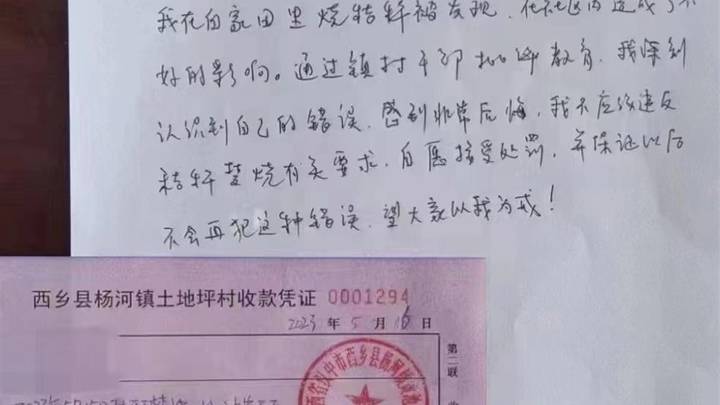 我在自家田里烧秸秆被发现,在社区内造成了不
好的影响。通过镇村干部批评教育,我深刻
认识到自己的错误,感到非常后悔,我不应该违反
秸秆焚烧有关要求,自愿接受处罚,并保证以后
不会再犯这种错误,望大家以我为戒!
西乡县杨河镇土地坪村收款凭证 0001294
2023年5月16日
第二联